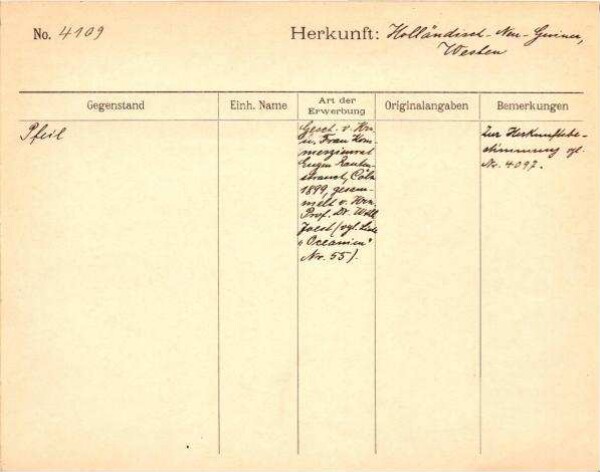 No. 4109
Herkunft: Holländisch-Neu-Guinea,
Westen
Gegenstand
Einh. Name
Art der
Erwerbung
Originalangaben
Bemerkungen
Pfeil
Gesch. v. Hrn.
u. Frau Kom-
merzienrat
Eugen Rauten-
strauch, Cöln
1899, gesam-
melt v. Hrn.
Prof. Dr. Wilh.
Joest (vgl. Liste
"Oceanien"
Nr. 55).
Zur Herkunftsbe-
stimmung vgl.
Nr. 4097.